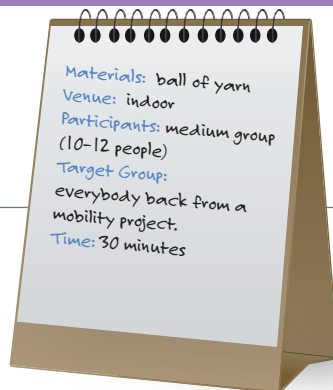 Materials: ball of yarn
Venue: indoor
Participants: medium group
(10-12 people)
Target Group:
everybody back from a
mobility project.
Time: 30 minutes